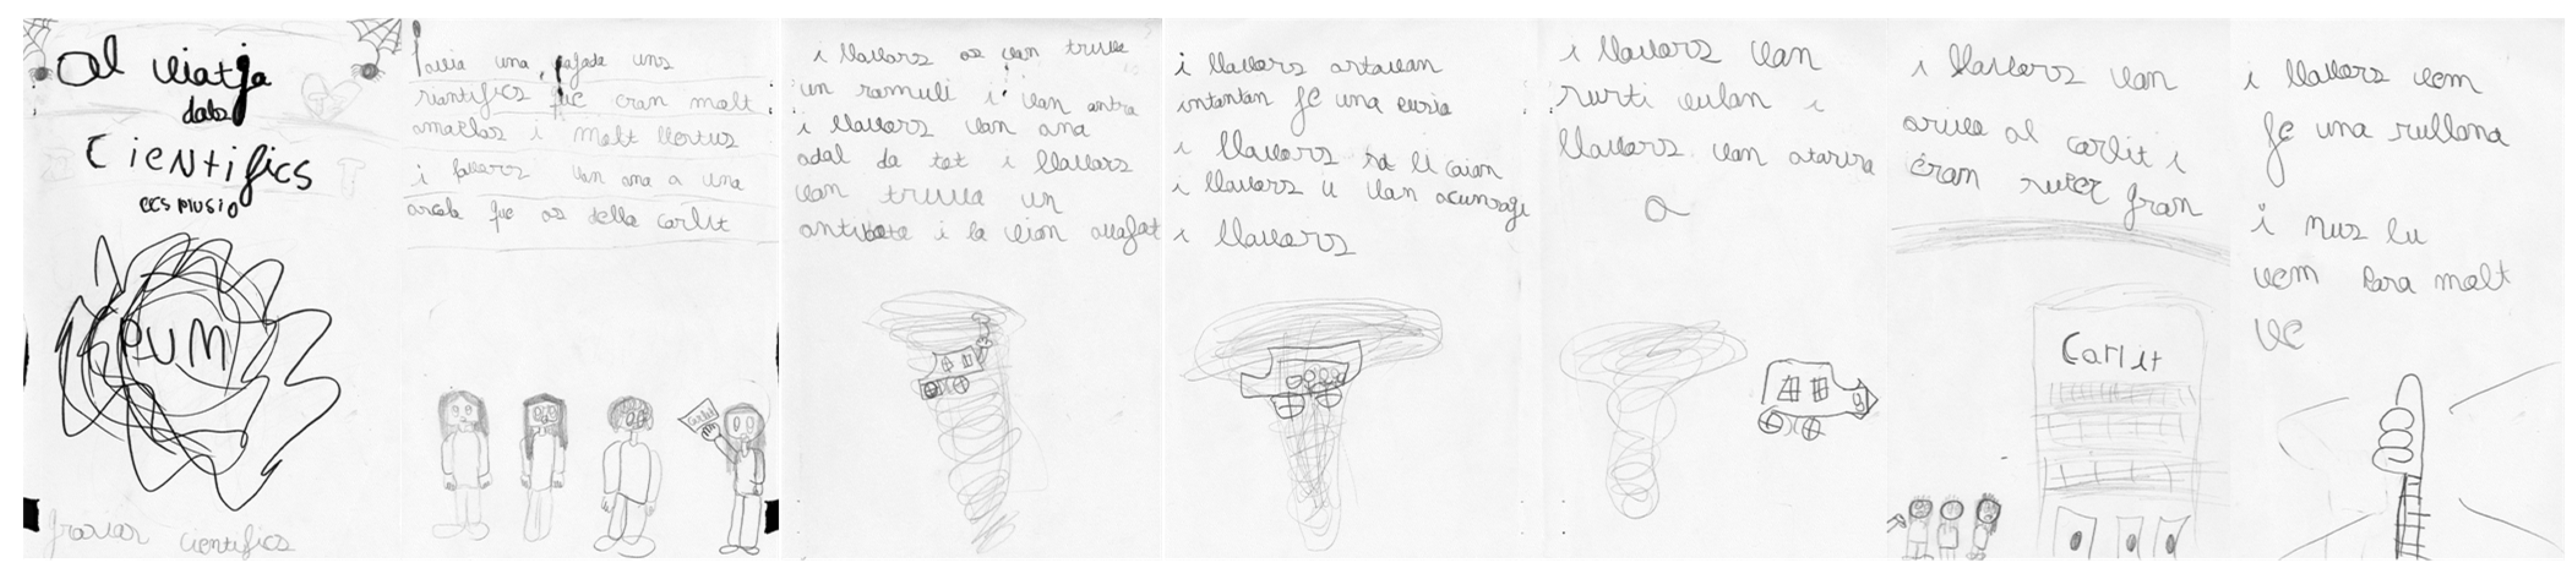 al viatja
dals
Cientifics
ecs Musio
PUM
grasias cientifics
Iavia una vagada uns
siantifics que eran molt
amaclas i molt llestus
i llavors van ana a una
ascola que as della carlit
Carlit
i llavors as van truva
un ramuli i van antra
i llavors van ana
adal da tot i llavors
van truva un
antibote i la vian avafat
i llavors astavan
intantan fe una cursa
i llavors sa li caian
i llavors u van acunsagi
i llavors
i llavors van
surti vulan i
llavors van atarisa
a
i llavors van
arriva al carlit i
eran super gran
Carlit
i llavors vem
fe una rullana
i nus lu
vem pasa molt
ve